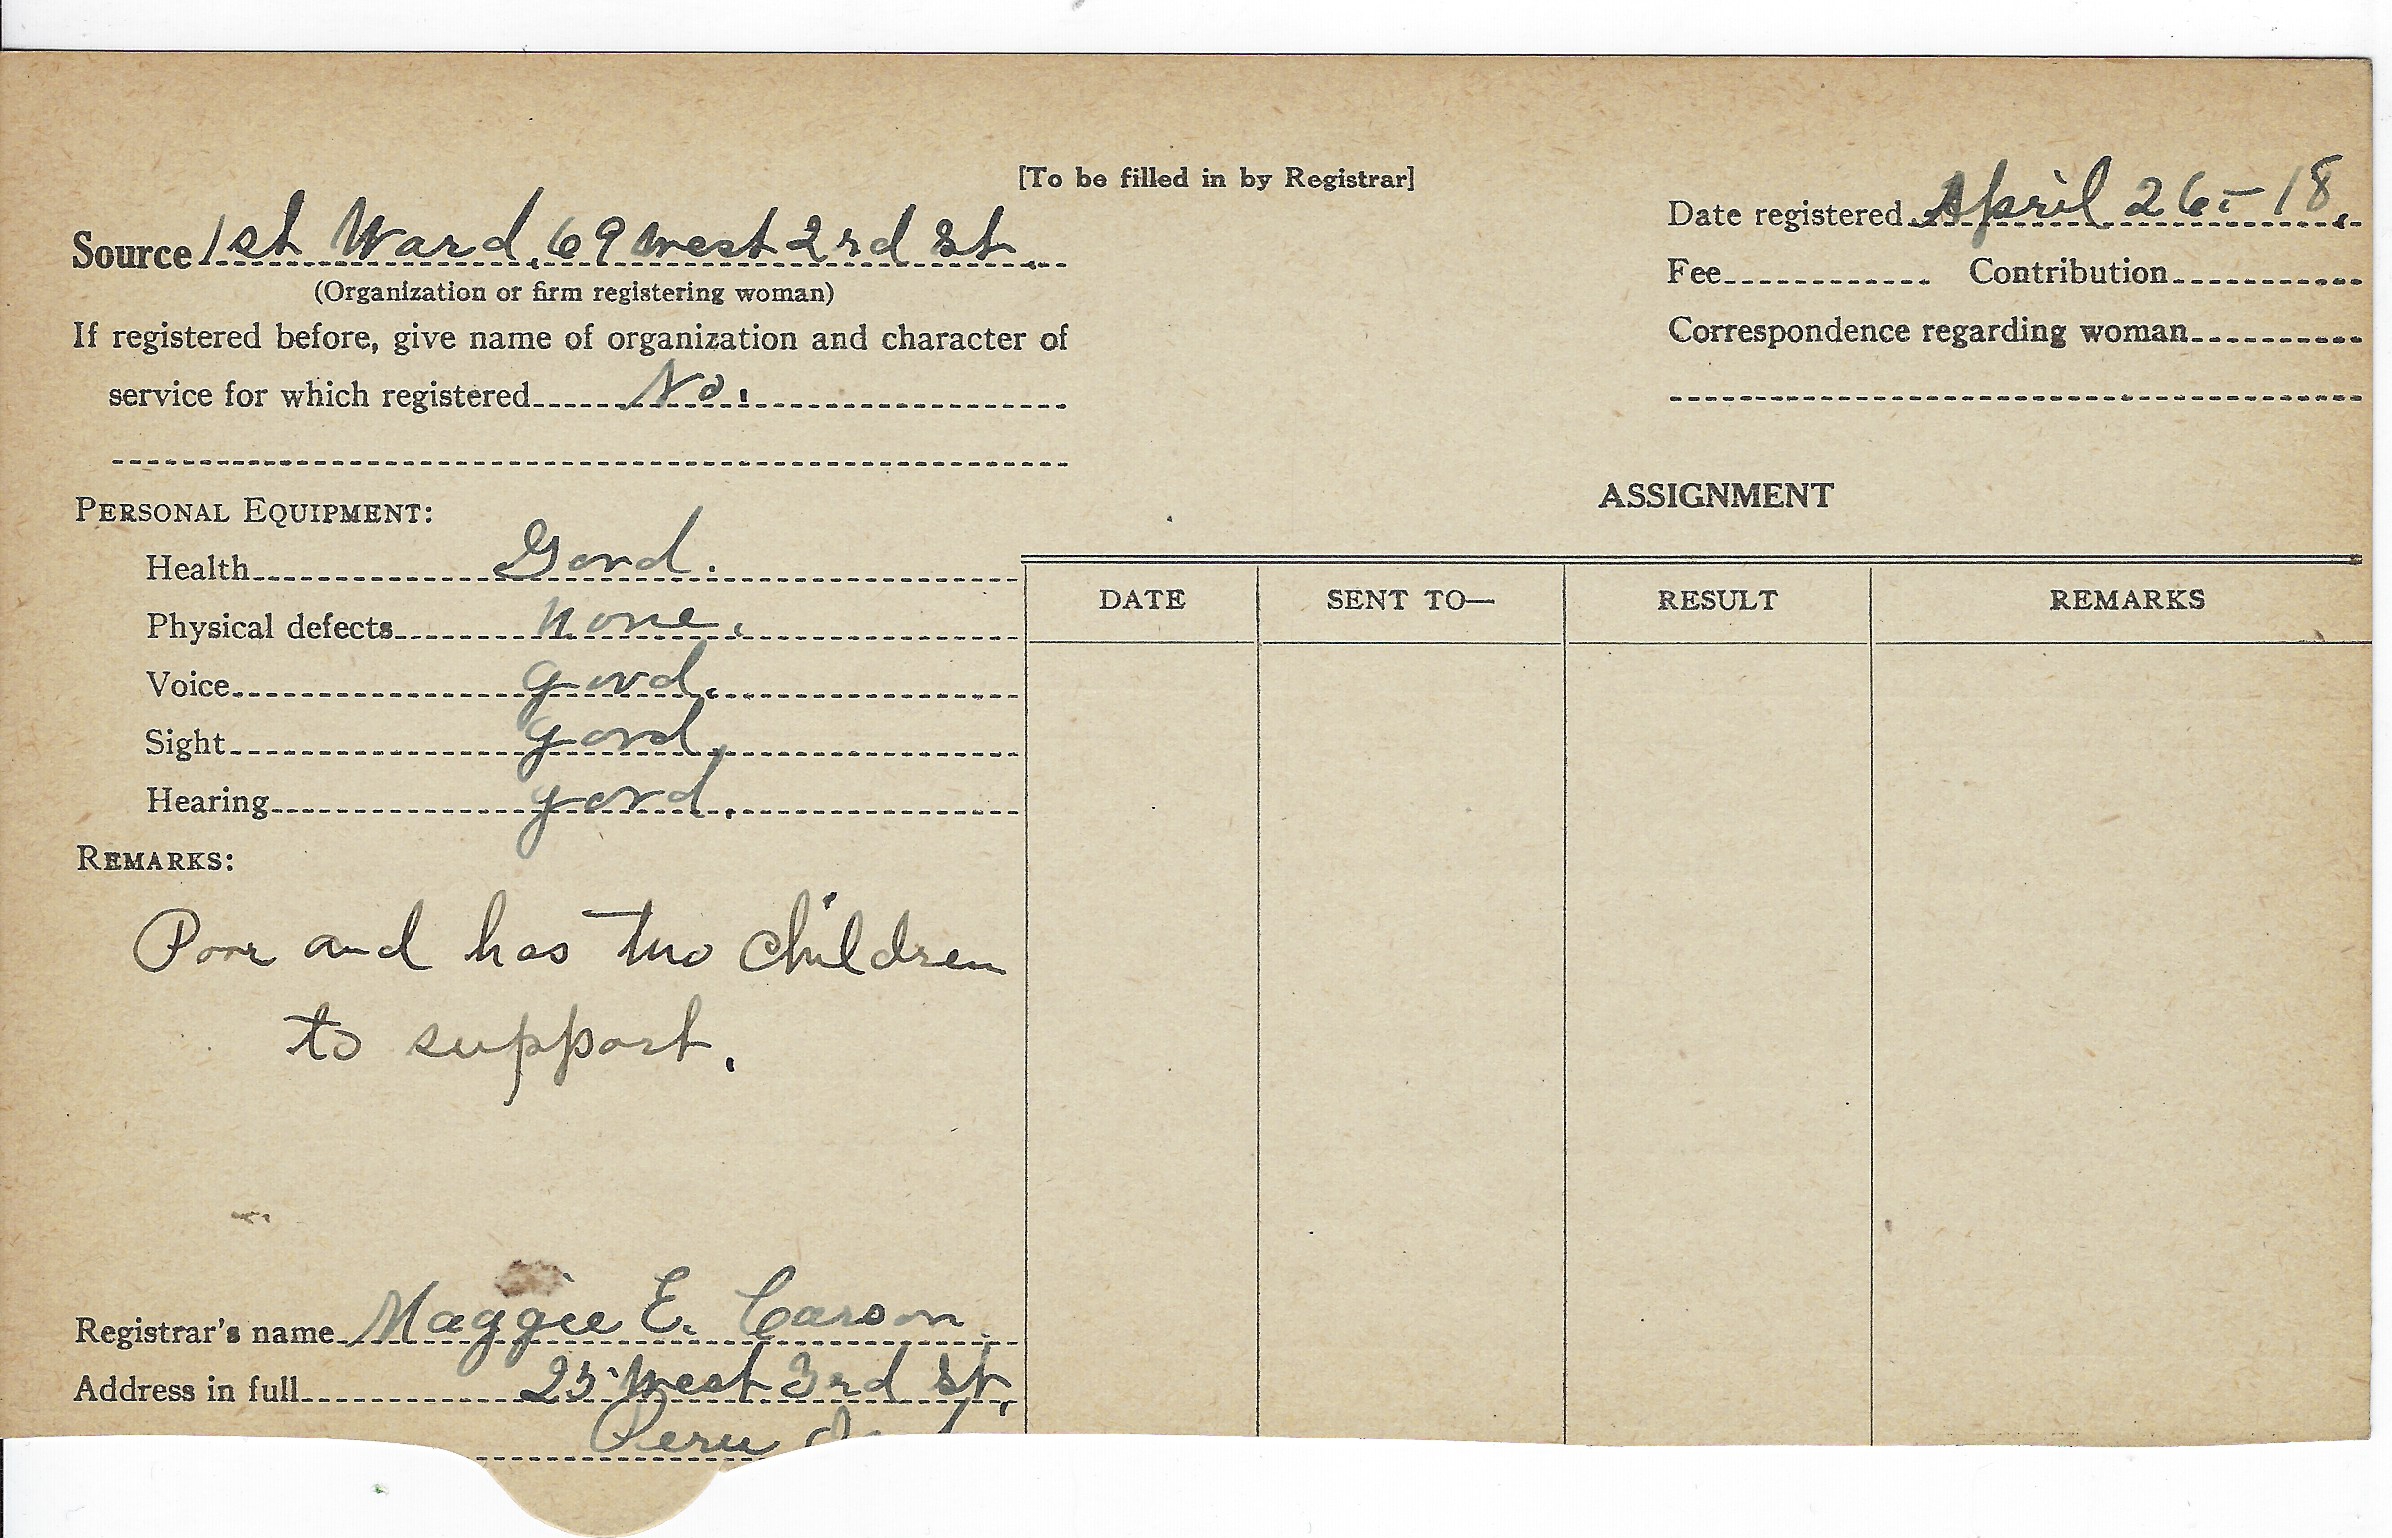 [To be filled in by Registrar]
Source 1st Ward, 69 west 2rd St.
(Organization or firm registering woman)
If registered before, give name of organization and character of
service for which registered No.
Date registered April 26 - 18.
Fee Contribution
Correspondence regarding woman
PERSONAL EQUIPMENT:
Health Good.
Physical defects none.
Voice good.
Sight good.
Hearing good.
REMARKS:
Poor and has two children
to support.
Registrar's name Maggie E. Carson
Address in full 25 West 3rd St,
Peru
ASSIGNMENT
DATE SENT TO— RESULT REMARKS